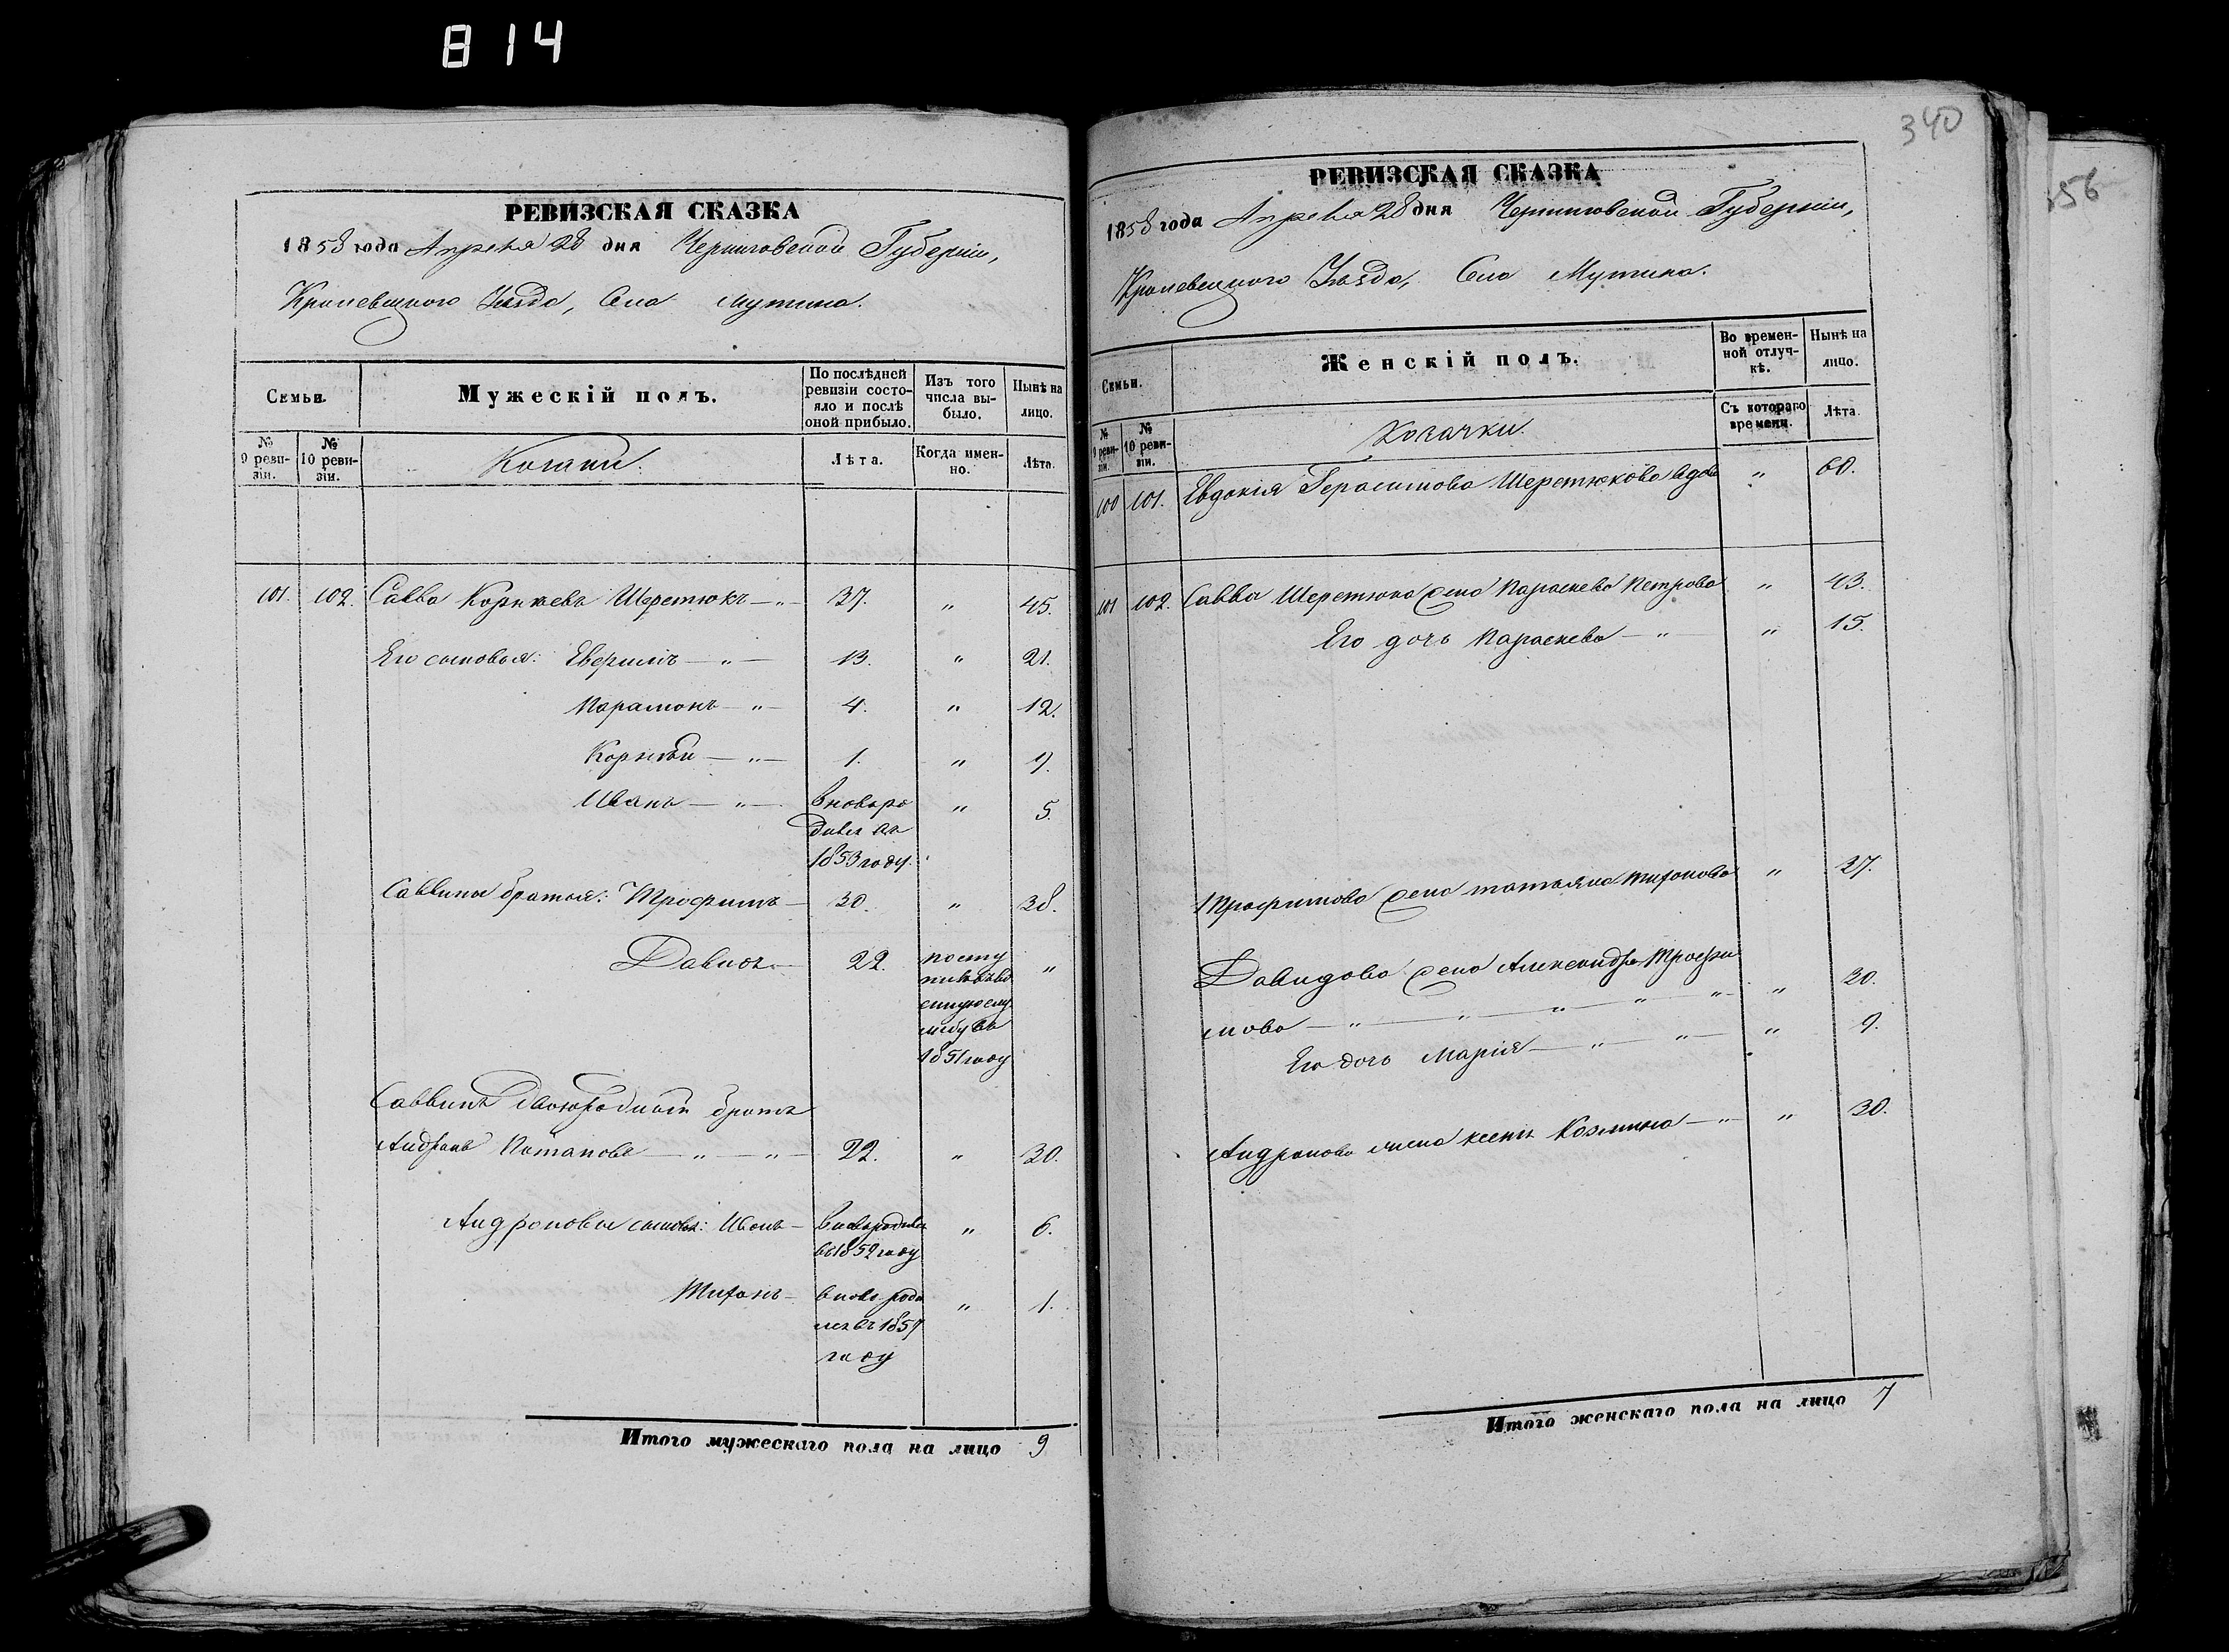 814
РЕВИЗСКАЯ СКАЗКА
1858 года Апреля 28 дня Черниговской Губернии,
Кролевецкого Уезда, Села Мутина.
Семьи.
Мужескій полъ.
По послѣдней ревизіи состояло и послѣ оной прибыло.
Изъ того числа выбыло.
Нынѣ на лицо.
№ 9 ревизіи.
№ 10 ревизіи.
Козаки.
Лѣта.
Когда именно.
Лѣта.
101. 102. Савва Корнѣевъ Шеретюкъ — " — 37. " 45.
Его сыновья: — " — 13. " 21.
Парамонъ — " — 4. " 12.
Корнѣй — " — 1. " 9.
Иванъ — " — вновь ро " 5.
дився въ
1853 году.
Саввины братья: Трофимъ — 30. " 38.
Давидъ — 22. посту "
1851 году
Саввинъ двоюродный братъ
Андронъ Потаповъ — " — " — 22. " 30.
Андроновы сыновья: Иванъ — " 6.
1852 году
Тихонъ — вновь роди " 1.
лся въ 1857
году
Итого мужескаго пола на лицо 9
340
РЕВИЗСКАЯ СКАЗКА
1858 года Апреля 28 дня Черниговской Губернии,
Кролевецкого Уезда, Села Мутина.
Семьи.
Женскій полъ.
Во временной отлучкѣ.
Нынѣ на лицо.
№ 9 ревизіи.
№ 10 ревизіи.
Козачки.
Съ котораго времени.
Лѣта.
100 101. Евдокія Герасимова Шеретюкова вдова " 60.
101 102. Саввы Шеретюка жена Параскева Петрова " 43.
Его дочь Параскева — " — " 15.
Трофимова жена Татьяна Тихонова " 37.
Давидова жена Александра Трофи
мова — " — " — " — " — " 30.
Его дочь Марія — " — " — " 9.
Андронова жена Ксенія Козмина — " — " 30.
Итого женскаго пола на лицо 7
56